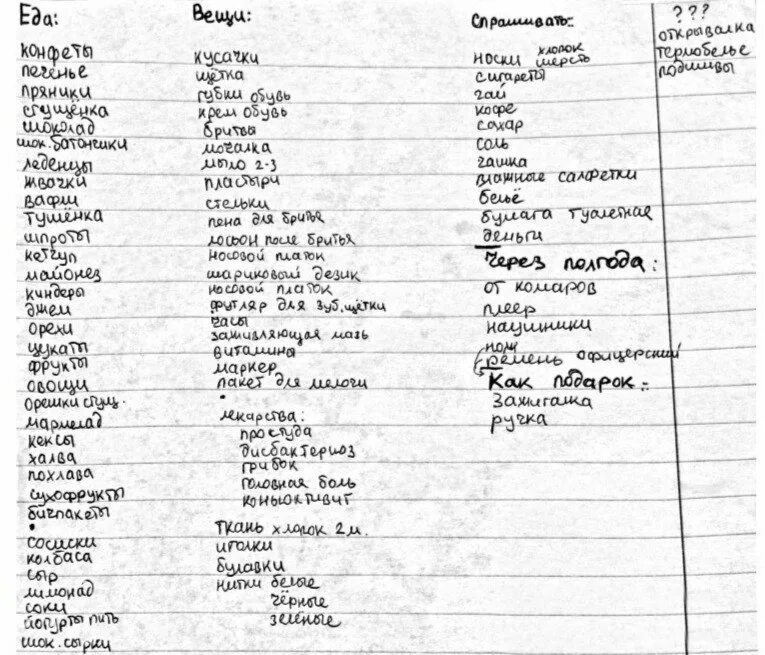 Еда:
конфеты
печенье
пряники
сгущёнка
шоколад
шок. батончики
леденцы
жвачки
вафли
тушёнка
шпроты
кетчуп
майонез
киндеры
джем
орехи
цукаты
фрукты
овощи
орешки сгущ.
мармелад
кексы
халва
похлава
сухофрукты
бичпакеты
•
сосиски
колбаса
сыр
лимонад
соки
йогурты пить
шок. сырки
Вещи:
кусачки
щётка
губки обувь
крем обувь
бритвы
мочалка
мыло 2-3
пластыри
стельки
пена для бритья
лосьон после бритья
носовой платок
шариковый дезик
носовой платок
футляр для зуб. щётки
часы
заживляющая мазь
витамины
маркер
пакет для мелочи
•
лекарства:
простуда
дисбактериоз
грибок
головная боль
коньюктивит
ткань хлопок 2 м.
иголки
булавки
нитки белые
чёрные
зелёные
Спрашивать:
носки хлопок шерсть
сигареты
чай
кофе
сахар
соль
чашка
влажные салфетки
бельё
бумага туалетная
деньги
Через полгода:
от комаров
плеер
наушники
нож
ремень офицерский
Как подарок:
Зажигалка
ручка
???
открывалка
термобелье
подшивы